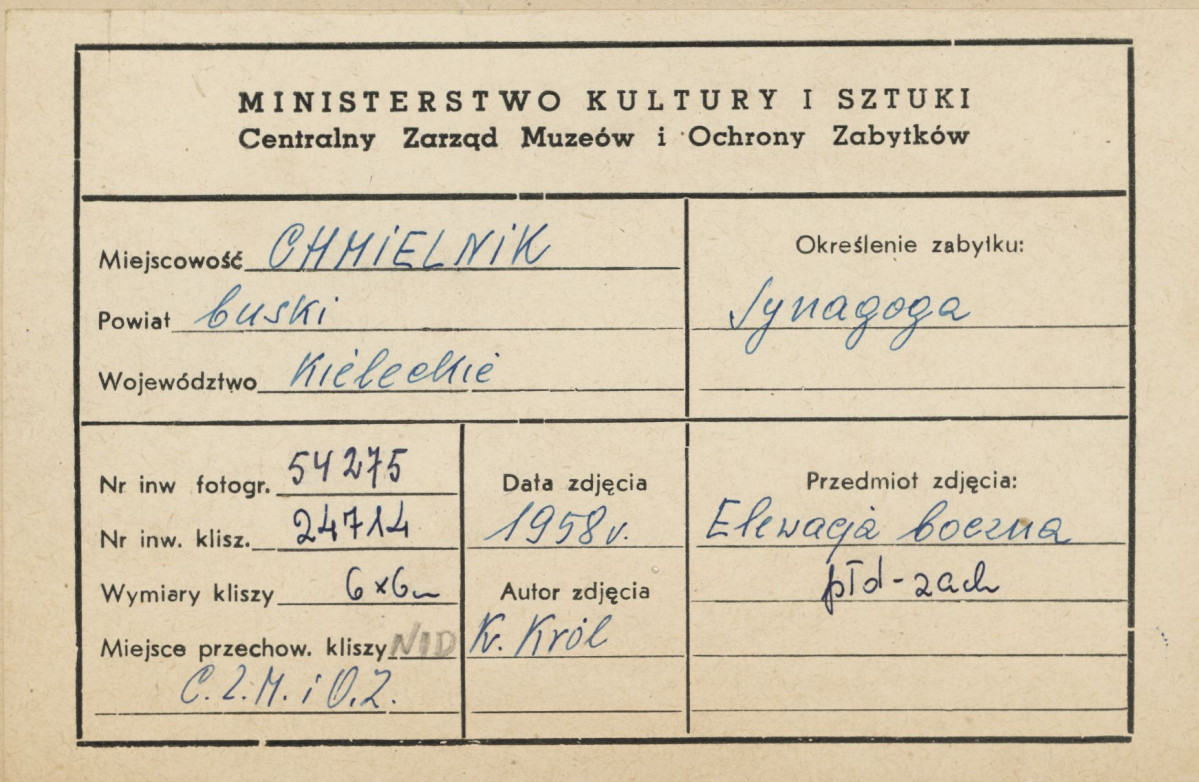 MINISTERSTWO KULTURY I SZTUKI
Centralny Zarząd Muzeów i Ochrony Zabytków
Miejscowość CHMiELNiK
Powiat buski
Województwo Kieleckie
Określenie zabytku:
Synagoga
Nr inw fotogr. 54275
Nr inw. klisz. 24714
Wymiary kliszy 6x6
Miejsce przechow. kliszy NID
C.Z.M. i O.Z.
Data zdjęcia
1958 r.
Autor zdjęcia
K. Król
Przedmiot zdjęcia:
Elewacja boczna
płd-zach